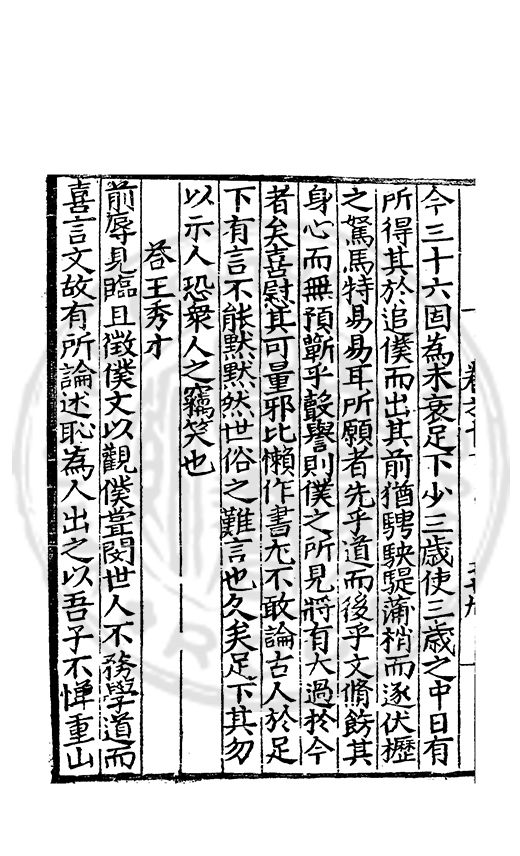 今三十六固為未衰足下少三歲使三歲之中日有
所得其於追僕而出其前猶騁駃騠蒲梢而逐伏櫪
之駑馬特易易耳所願者先乎道而後乎文脩飭其
身心而無預蘄乎聲譽則僕之所見將有大過於今
者矣喜慰其可量邪比懶作書尤不敢論古人於足
下有言不能默默然世俗之難言也久矣足下其勿
以示人恐衆人之竊笑也
答王秀才
前辱見臨且徵僕文以觀僕嘗閔世人不務學道而
喜言文故有所論述恥為人出之以吾子不憚重山